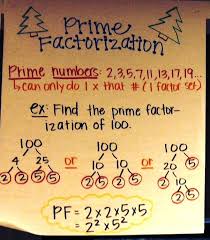 Prime
Factorization
Prime numbers: 2,3,5,7,11,13,17,19...
↳ can only do 1 x that # (1 factor set)
ex: Find the prime factor-
ization of 100.
100 or 100 or 100
4 25 10 10 20 5
2 2 5 5 2 5 2 5 10 2
2 5
PF = 2x2x5x5
= 2² x 5²